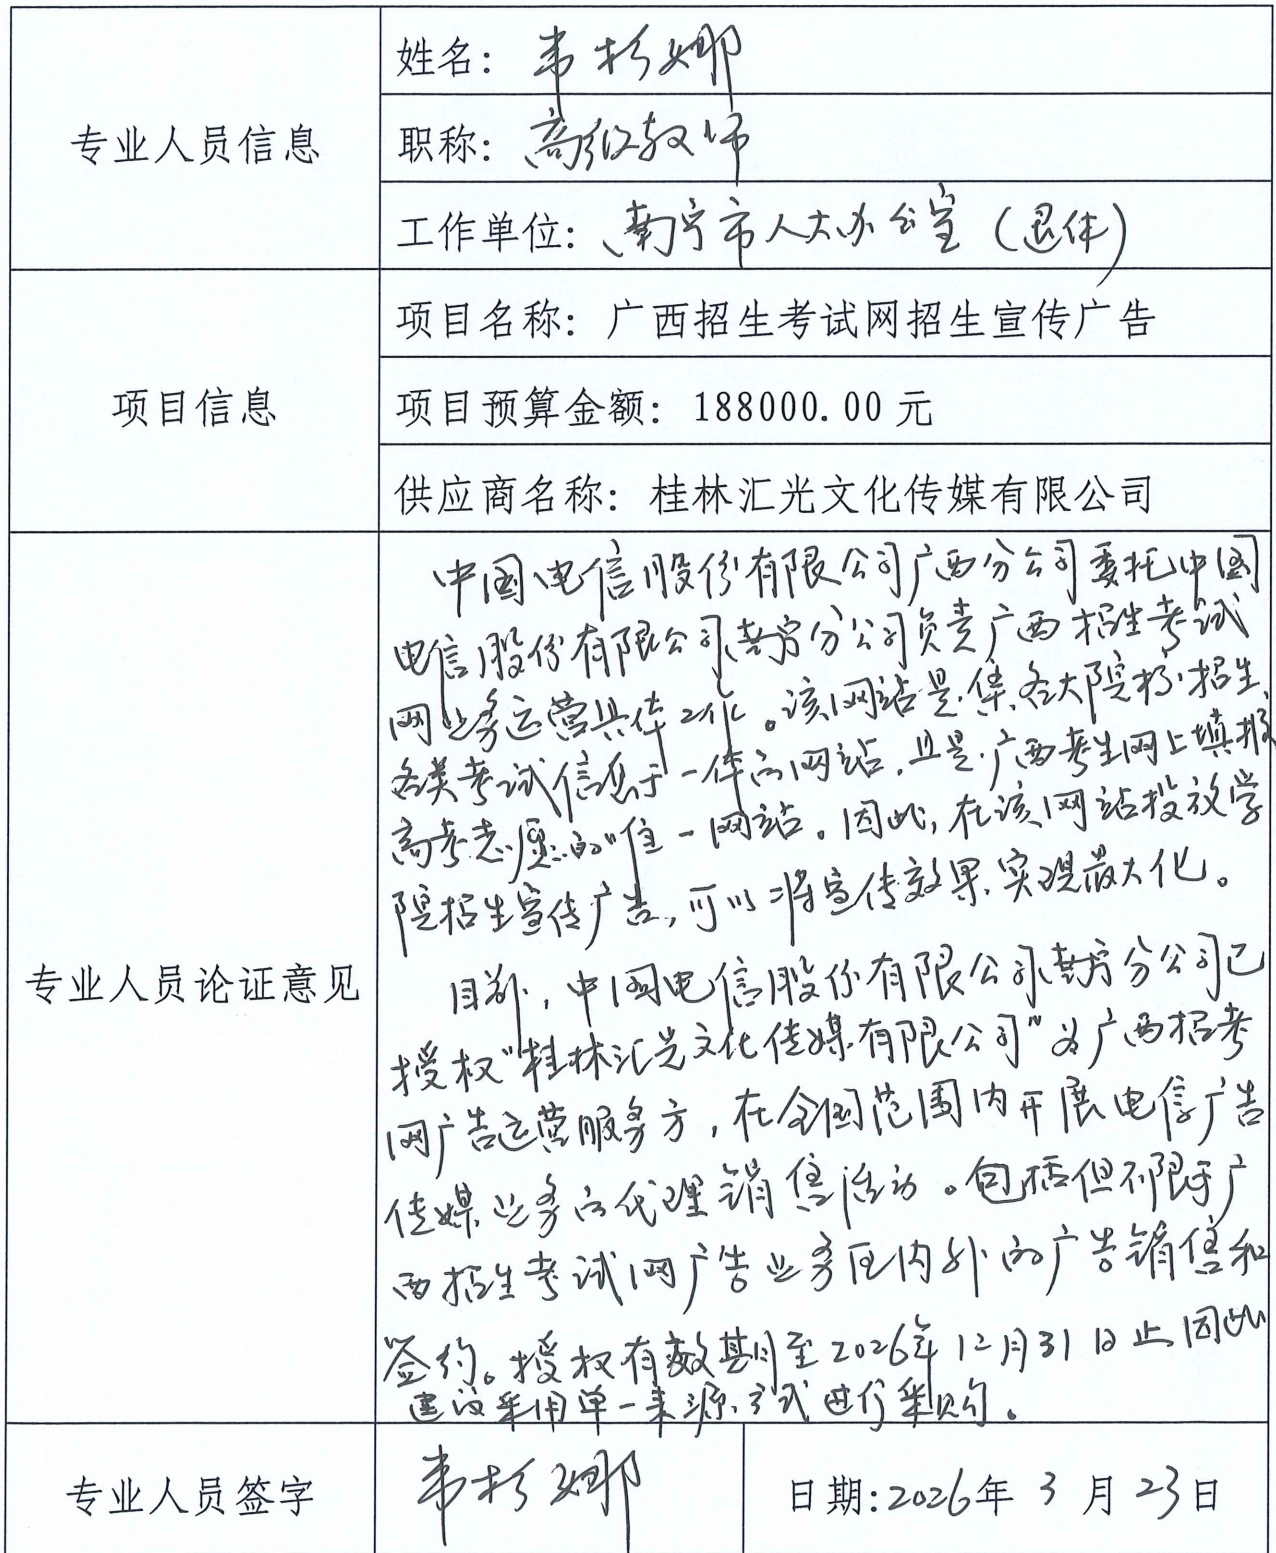 专业人员信息
姓名：韦杉娜
职称：高级教师
工作单位：南宁市人大办公室（退休）
项目信息
项目名称：广西招生考试网招生宣传广告
项目预算金额：188000.00元
供应商名称：桂林汇光文化传媒有限公司
专业人员论证意见
中国电信股份有限公司广西分公司委托中国
电信股份有限公司南宁分公司负责广西招生考试
网业务运营具体工作。该网站是集各大院校招生、
各类考试信息于一体的网站，且是广西考生网上填报
高考志愿的唯一网站。因此，在该网站投放学
院招生宣传广告，可以将宣传效果实现最大化。
目前，中国电信股份有限公司南宁分公司已
授权“桂林汇光文化传媒有限公司”为广西招考
网广告运营服务方，在全国范围内开展电信广告
传媒业务的代理销售活动。包括但不限于广
西招生考试网广告业务区内外的广告销售和
签约。授权有效期至2026年12月31日止因此
建议采用单一来源方式进行采购。
专业人员签字
韦杉娜
日期：2026年3月23日